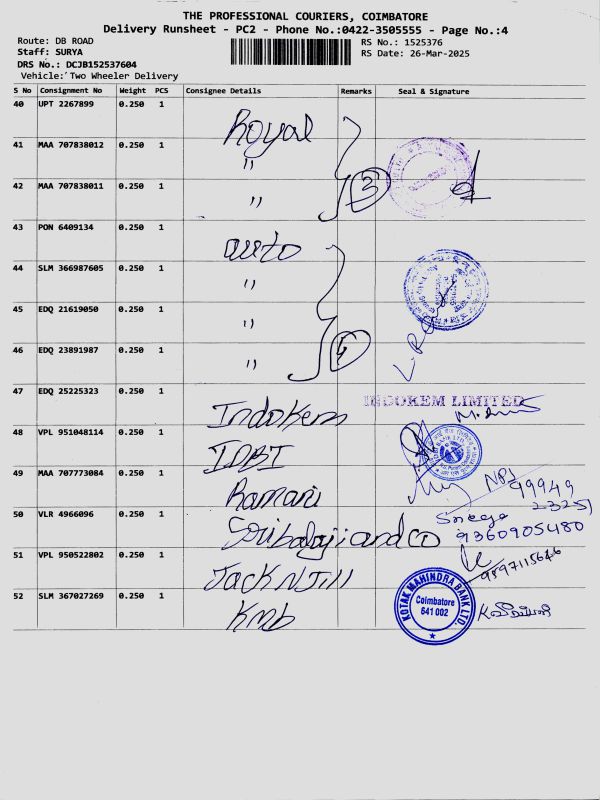 THE PROFESSIONAL COURIERS, COIMBATORE
Delivery Runsheet - PC2 - Phone No.:0422-3505555 - Page No.:4
Route: DB ROAD
RS No.: 1525376
Staff: SURYA
RS Date: 26-Mar-2025
DRS No.: DCJB152537604
Vehicle: Two Wheeler Delivery
S No Consignment No Weight PCS Consignee Details Remarks Seal & Signature
40 UPT 2267899 0.250 1 Royal
41 MAA 707838012 0.250 1 "
42 MAA 707838011 0.250 1 " 3
43 PON 6409134 0.250 1 auto
44 SLM 366987605 0.250 1 "
45 EDQ 21619050 0.250 1 "
46 EDQ 23891987 0.250 1 "
47 EDQ 25225323 0.250 1 Indokem INDOKEM LIMITED
48 VPL 951048114 0.250 1 IDBI
49 MAA 707773084 0.250 1 Ramani 99949
23251
50 VLR 4966096 0.250 1 Sribalaji and co 9360905480
51 VPL 950522802 0.250 1 Jack N Jill 9897115646
52 SLM 367027269 0.250 1 Kmb KOTAK MAHINDRA BANK LTD.
Coimbatore
641 002